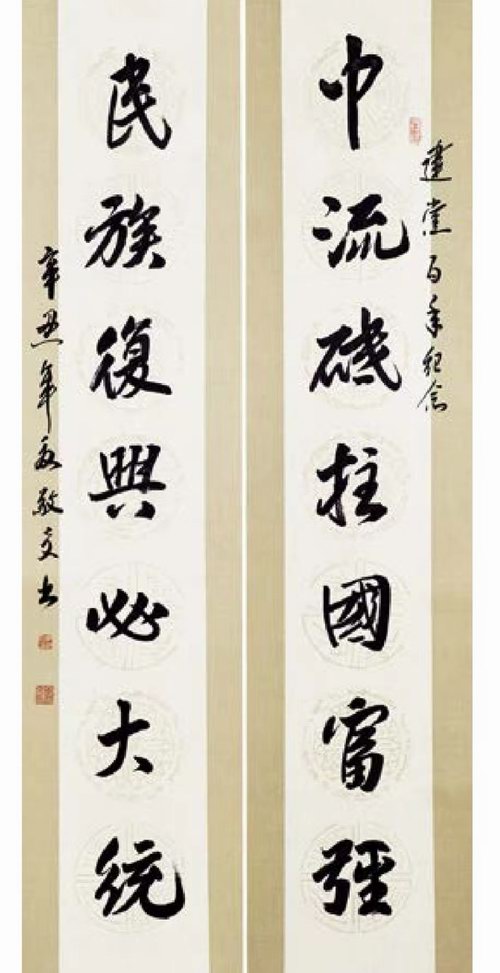 建党百年纪念
中流砥柱國富强
民族復興必大統
辛丑年夏敬文书